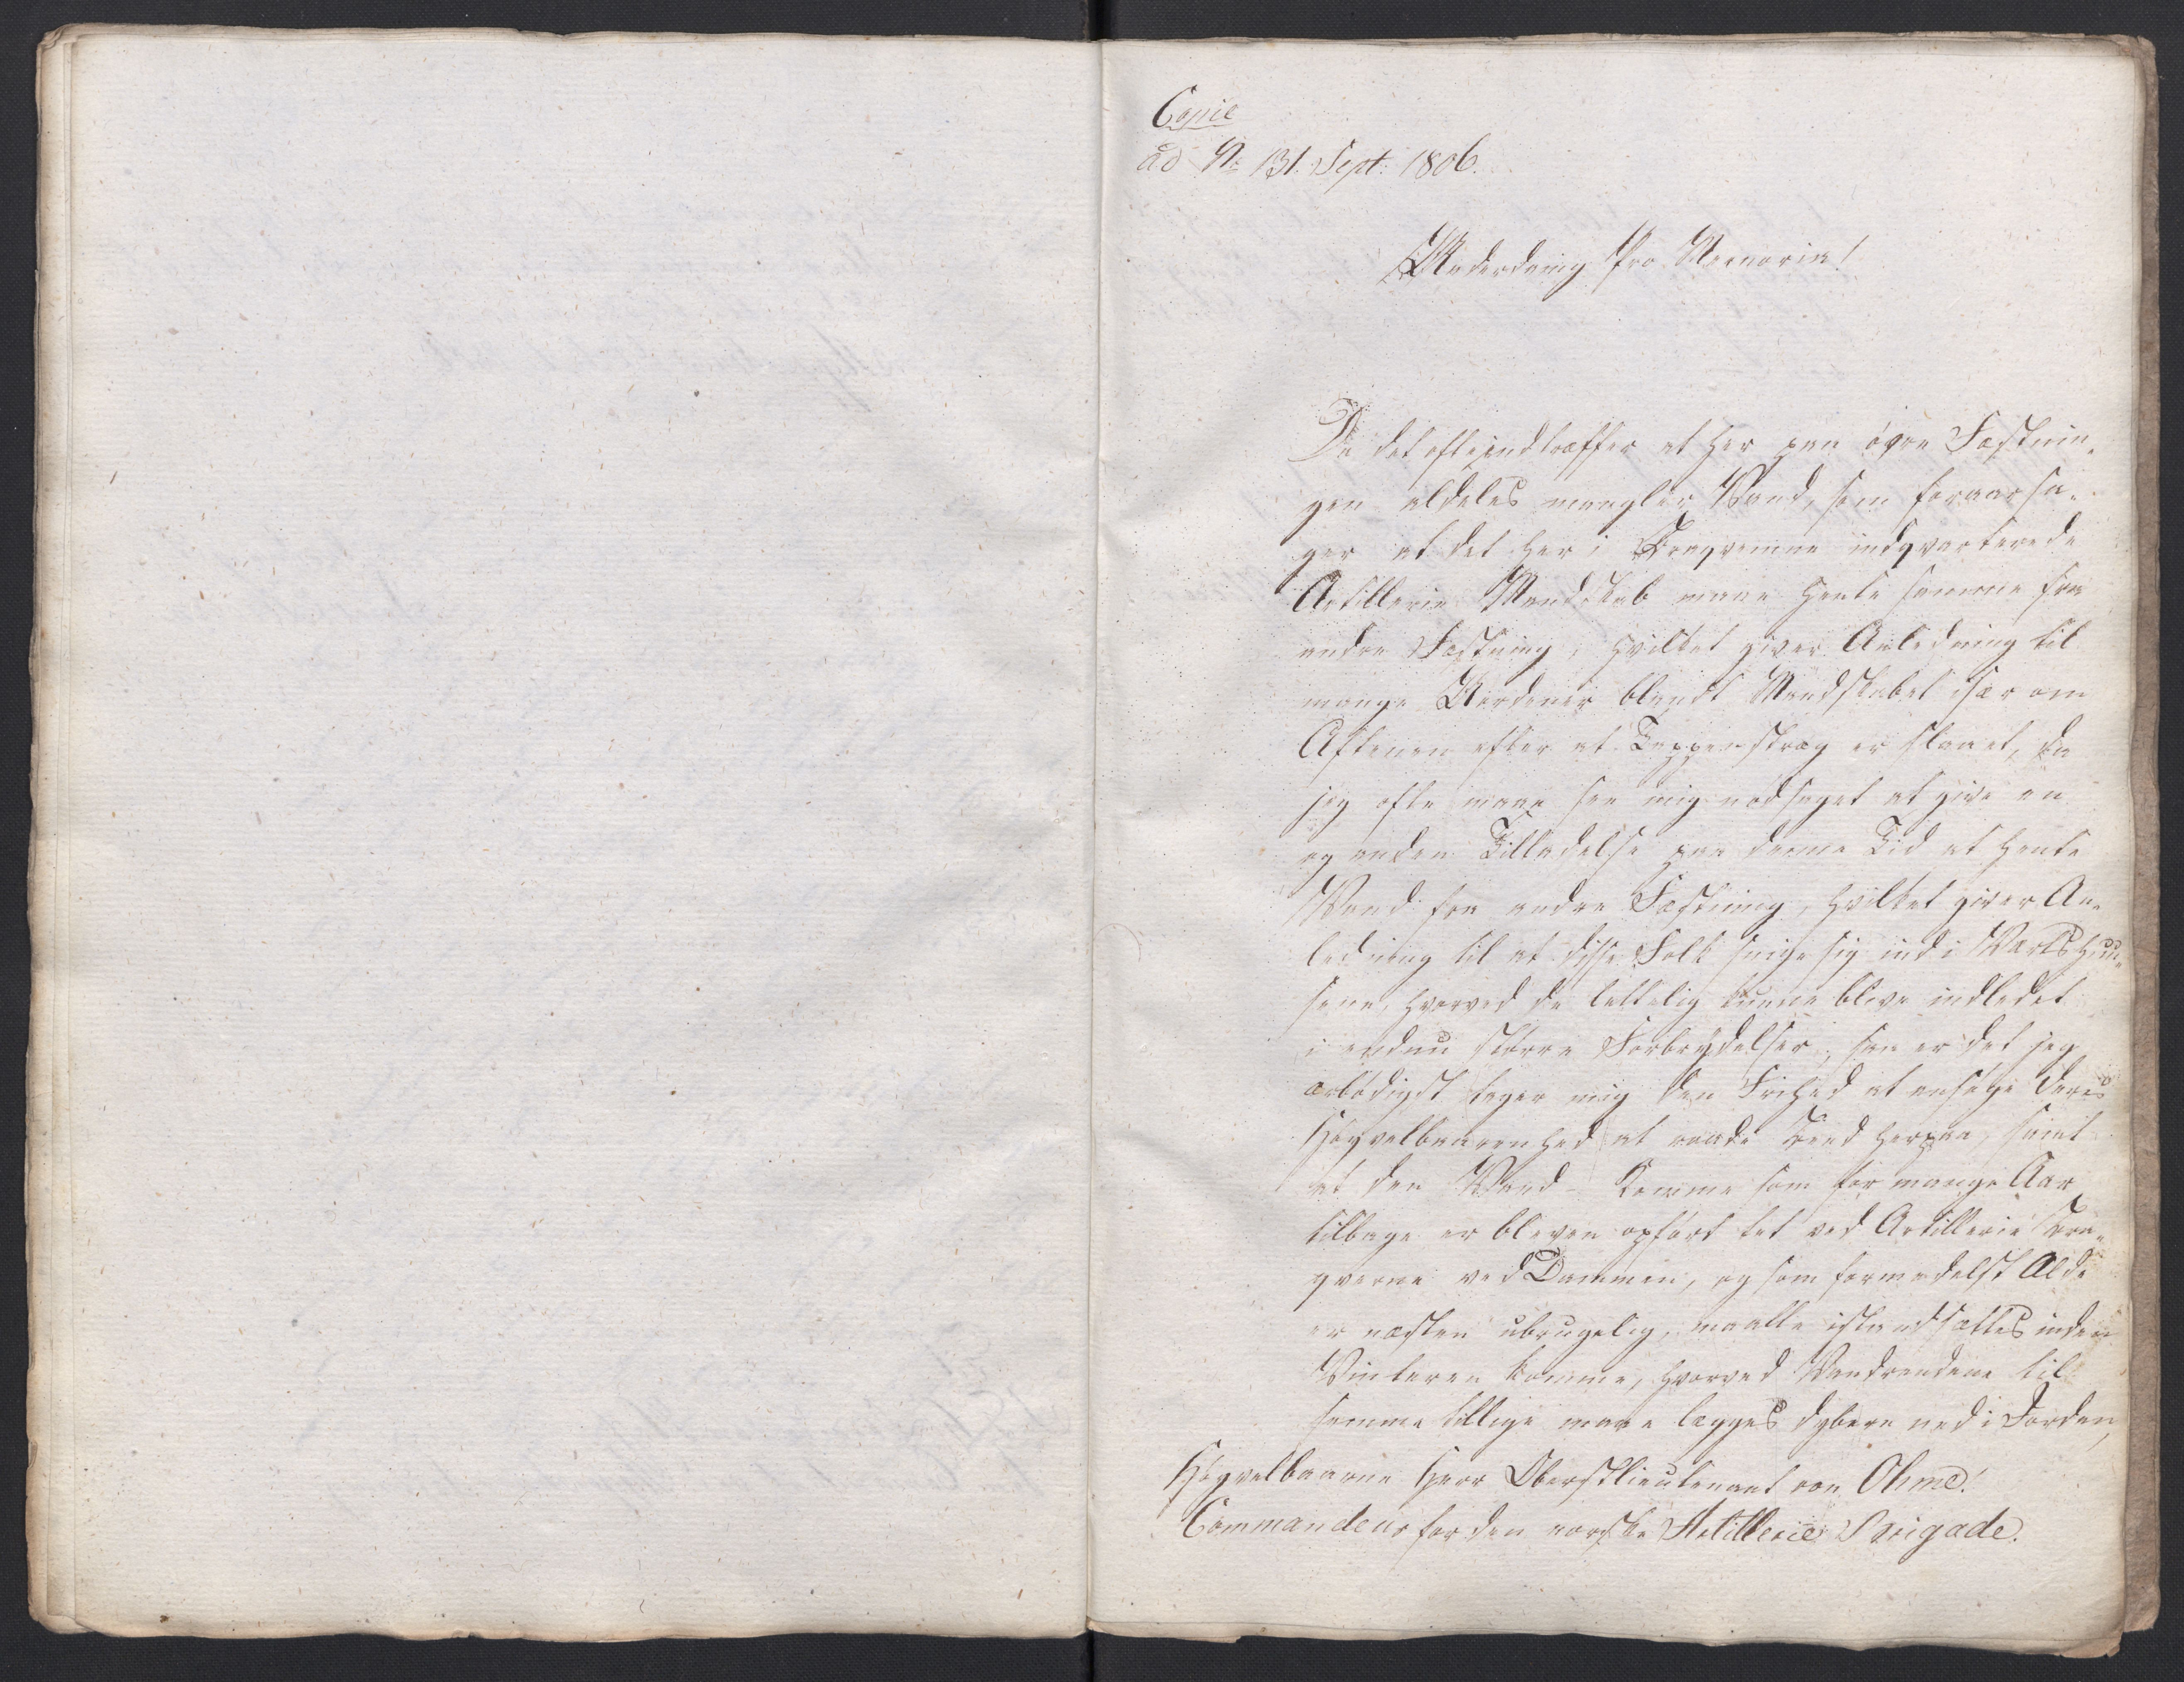 Copie
ad No 131. Sept: 1806.
Underdanig Pro Memoria!
Da det ofte indtræffer at her paa øvre Fæstnin-
gen aldeles mangler Vand, som foraarsa-
ger at det her i Bragverne indqvarterede
Artillerie Mandskab maae hente samme fra
nedre Fæstning, hvilket giver Anledning til
mange Uordener blandt Mandskabet især om
Aftenen efter at Tappenstræg er slaaet, da
jeg ofte maae see mig nødsaget at give en
og anden Tilladelse paa denne Tid at hente
Vand fra nedre Fæstning, hvilket giver An-
ledning til at disse Folk snige sig ind i Vertshuu-
sene, hvorved de lettelig kunne blive indledet
i endnu større Forbrydelser, saa er det jeg
ærbødigst tager mig den Frihed at ansøge Deres
Høyvelbaarenhed at raade Bod herpaa, samt
at den Vand-Komme som for mange Aar
tilbage er bleven opført tet ved Artillerie Bra-
qverne ved Dammen, og som formedelst Ælde
er næsten ubrugelig, maatte istandsættes inden
Vinteren komme, hvorved Vandrendene til
samme tillige maae lægges dybere ned i Jorden,
Høyvelbaarne Herr Oberstlieutenant von Ohme!
Commandeur for den norske Artillerie Brigade.